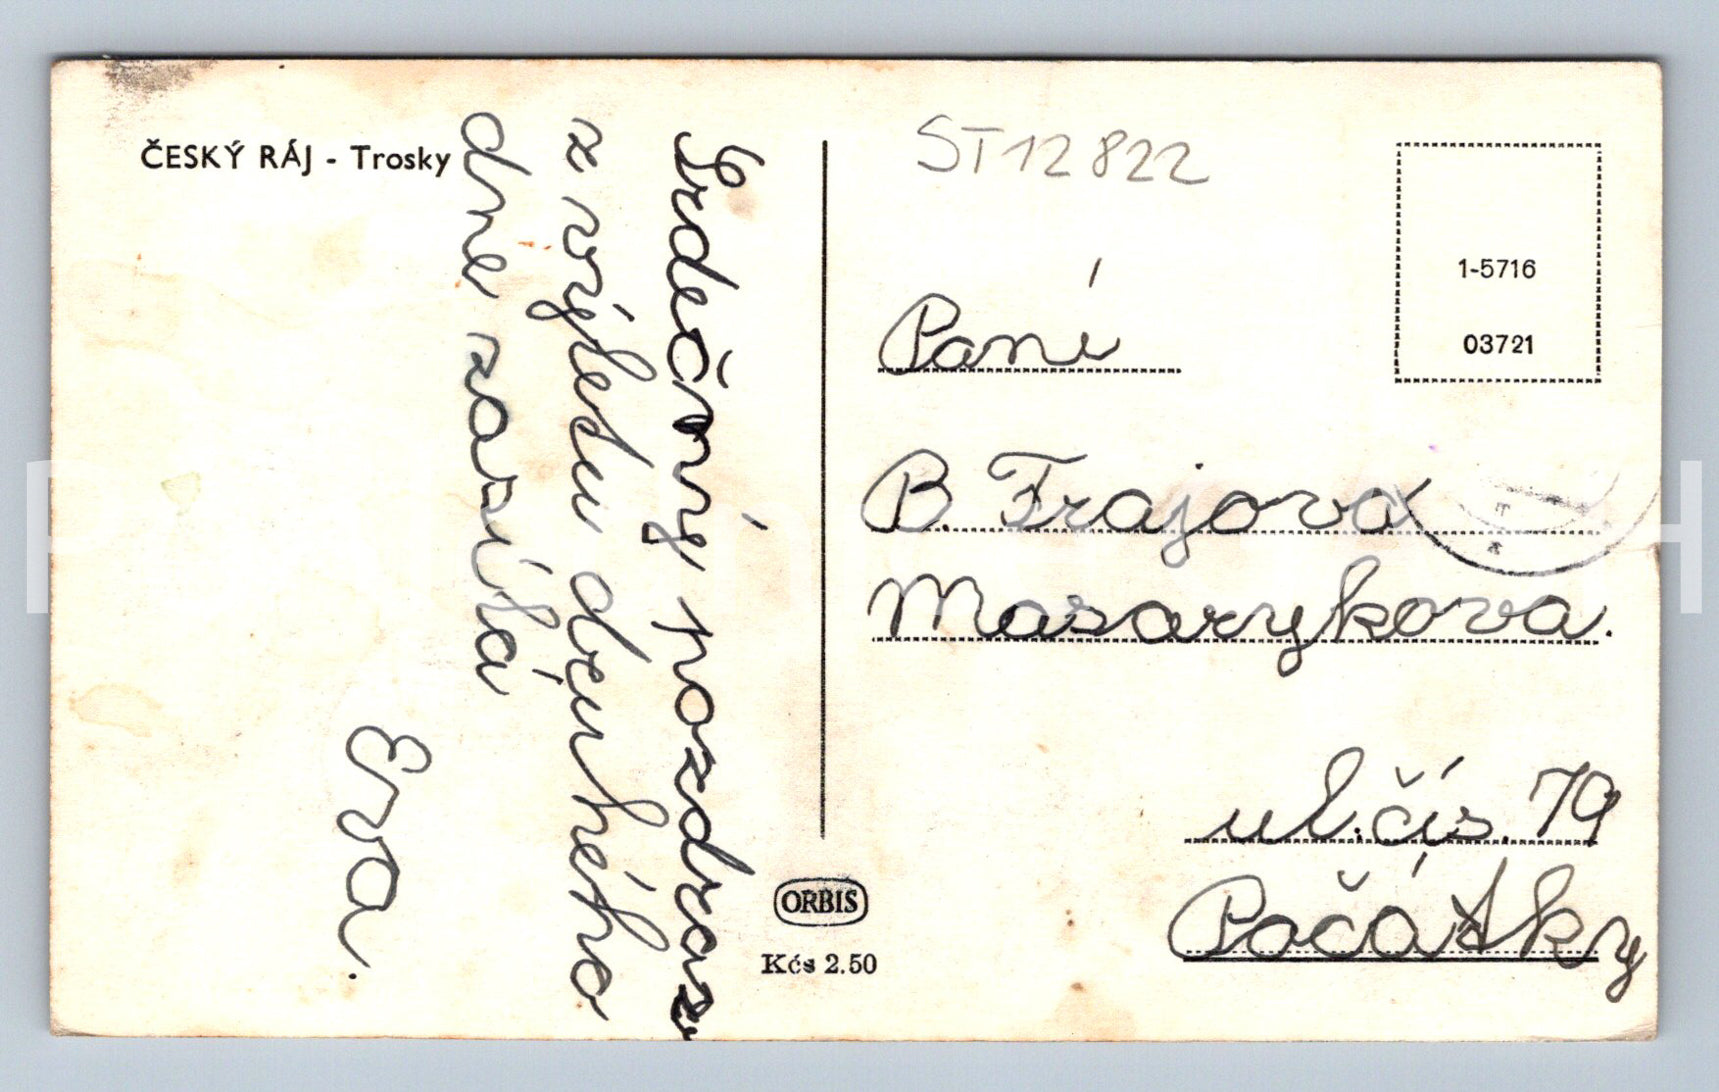 ČESKÝ RÁJ - Trosky
Srdečný pozdraz
z výletu druhého
dne zasílá
Eva.
ST12822
1-5716
03721
Paní
B. Frajova
Masarykova.
ul. čís. 79
Počátky
ORBIS
Kčs 2.50